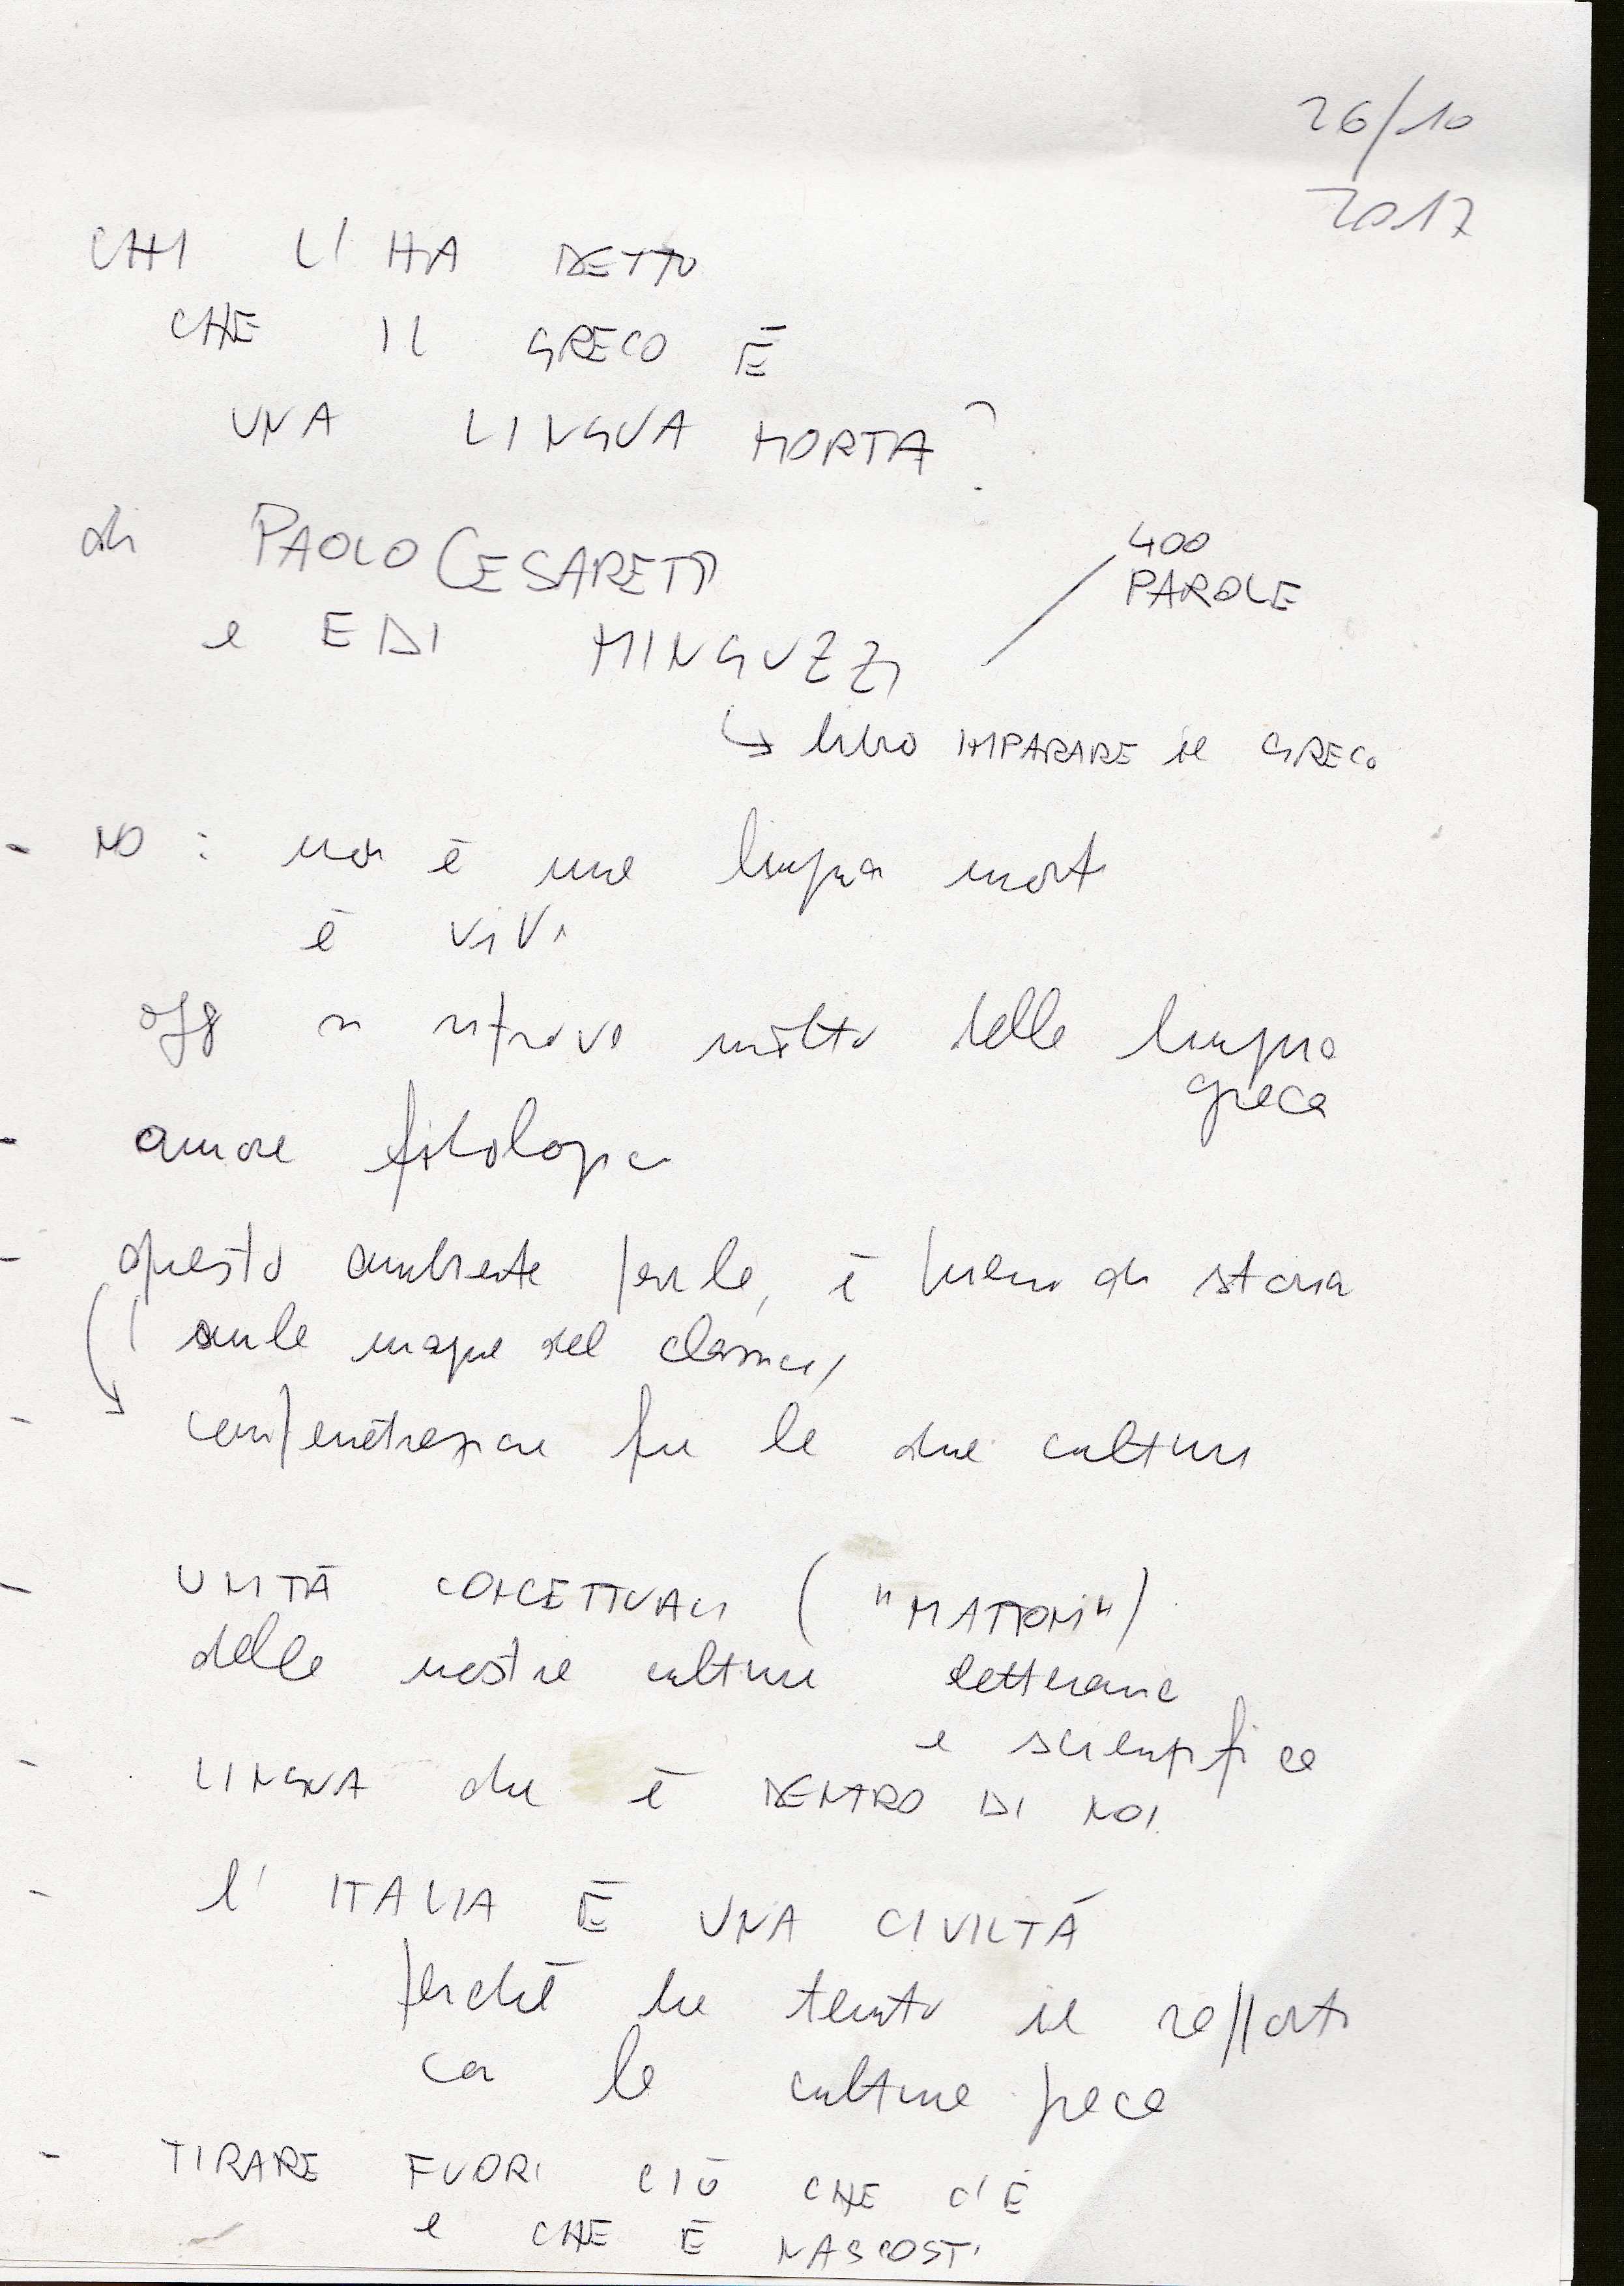 26/10
2017
CHI L'HA DETTO
CHE IL GRECO È
UNA LINGUA MORTA?
di PAOLO CESARETTI
400
PAROLE
e EDI MINGUZZI
↳ libro IMPARARE il GRECO
- NO : non è una lingua morta
è viva
oggi si ritrova molto della lingua
greca
- amore filologia
- questo ambiente parla, è pieno di storia
aula magna del classico,
- compenetrazione fra le due culture
- UNITÀ CONCETTUALI ("MATTONI")
della nostra cultura letteraria
e scientifica
- LINGUA che è DENTRO DI NOI
- l'ITALIA È UNA CIVILTÀ
perché ha tenuto il rapporto
con la cultura greca
- TIRARE FUORI CIÒ CHE C'È
e CHE È NASCOSTO